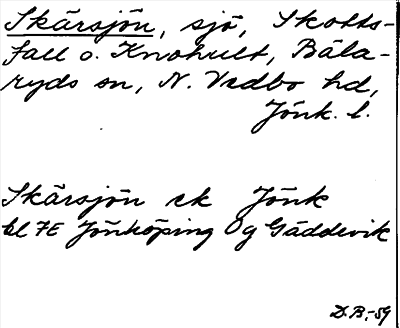 Skärsjön, sjö, Skotts-
fall o. Knohult, Bäla-
ryds sn, N. Vedbo hd,
Jönk. l.
Skärsjön ek Jönk
bl 7E Jönköping Og Gäddevik
D.B.-59